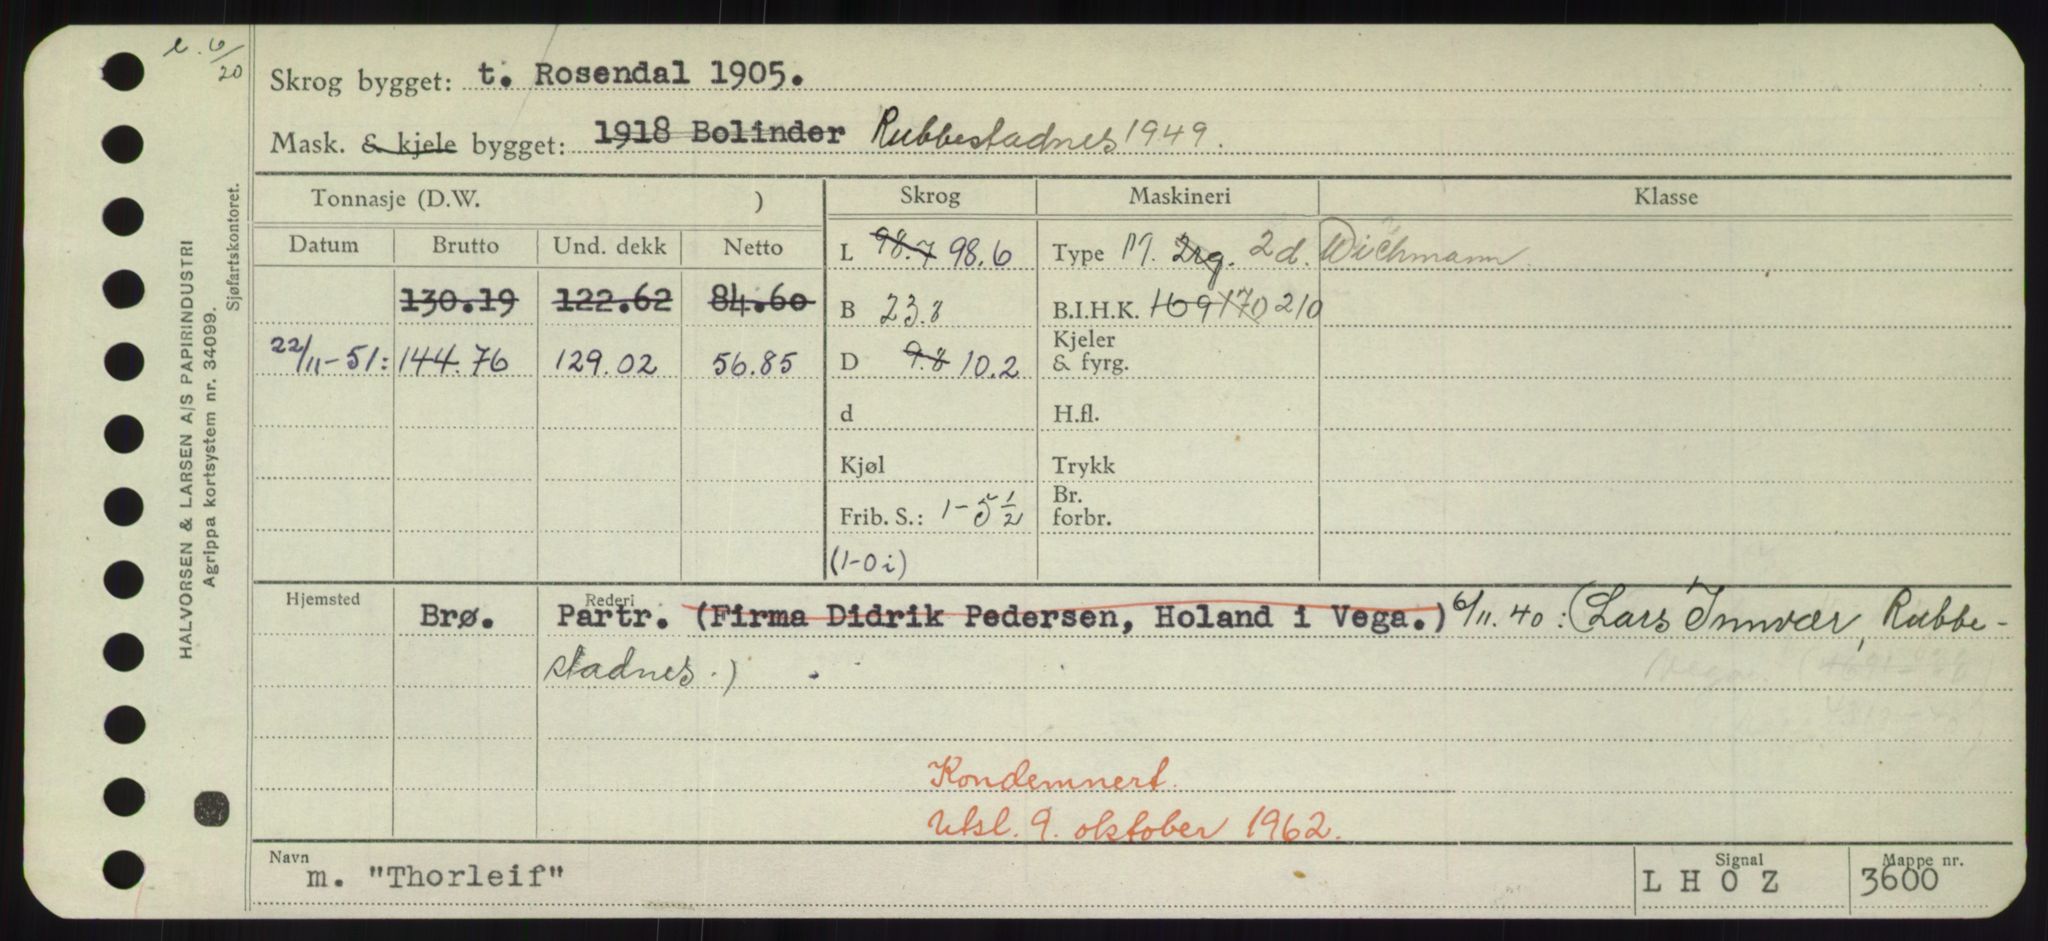 L. 6/20
HALVORSEN & LARSEN A/S PAPIRINDUSTRI
Agrippa kortsystem nr. 34099.
Sjøfartskontoret.
Skrog bygget: t. Rosendal 1905.
Mask. & kjele bygget: 1918 Bolinder Rubbestadnes 1949.
Tonnasje (D.W. ) Skrog Maskineri Klasse
Datum Brutto Und. dekk Netto L 98.7 98.6 Type M. 2rg. 2 d. Wichmann
130.19 122.62 84.60 B 23.8 B.I.H.K. 169 170 210
22/11-51: 144.76 129.02 56.85 D 9.8 10.2 Kjeler & fyrg.
d H.fl.
Kjøl Trykk
Frib. S.: 1-5½ Br. forbr.
(1-0 i)
Hjemsted Rederi
Brø. Partr. (Firma Didrik Pedersen, Holand i Vega.) 6/11.40: (Lars Innvær, Rubbe-
stadnes.)
Vega.
Kondemnert.
Utsl. 9. oktober 1962.
Navn Signal Mappe nr.
m. "Thorleif" L H O Z 3600